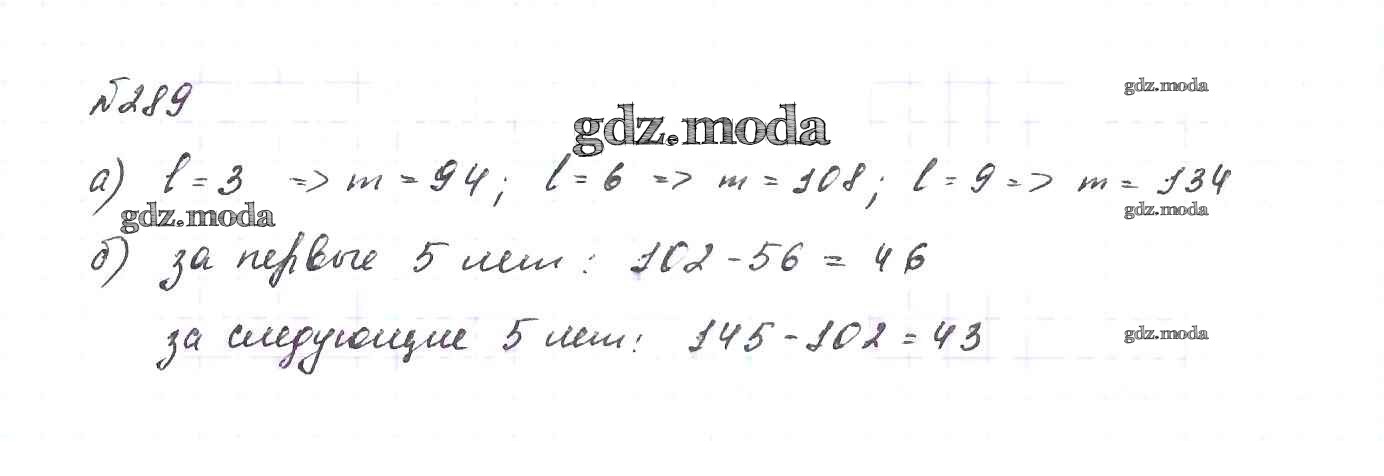 №289
gdz.moda
gdz.moda
а) l = 3 => m = 94; l = 6 => m = 108; l = 9 => m = 134
gdz.moda
gdz.moda
б) за первые 5 лет: 102 - 56 = 46
за следующие 5 лет: 145 - 102 = 43
gdz.moda